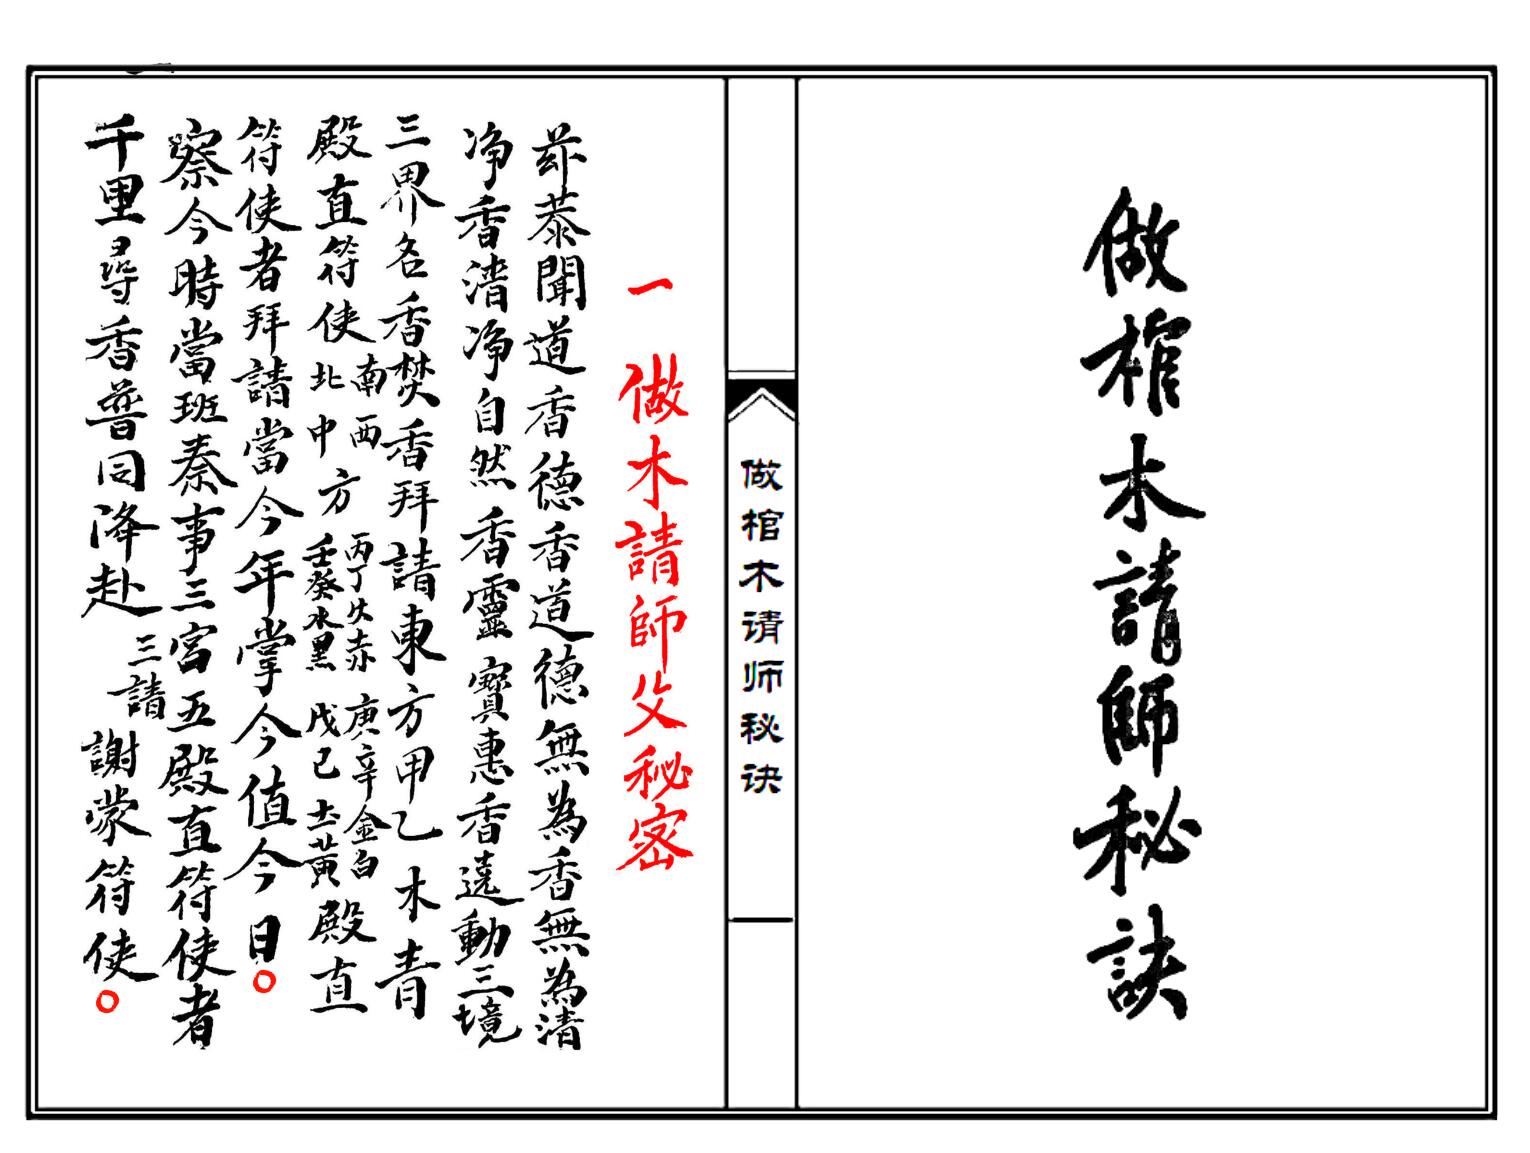 做棺木請師秘訣
做棺木请师秘诀
一 做木請師父秘密
恭聞道香德香道德無為香無為清
净香清净自然香靈寳惠香遶動三境
三界名香焚香拜請東方甲乙木青
殿直符使南西北中方丙丁火赤庚辛金白壬癸水黑戊己土黄殿直
符使者拜請當今年掌今值今日。
察今時當班奏事三宮五殿直符使者
千里尋香普同降赴三請謝蒙符使。